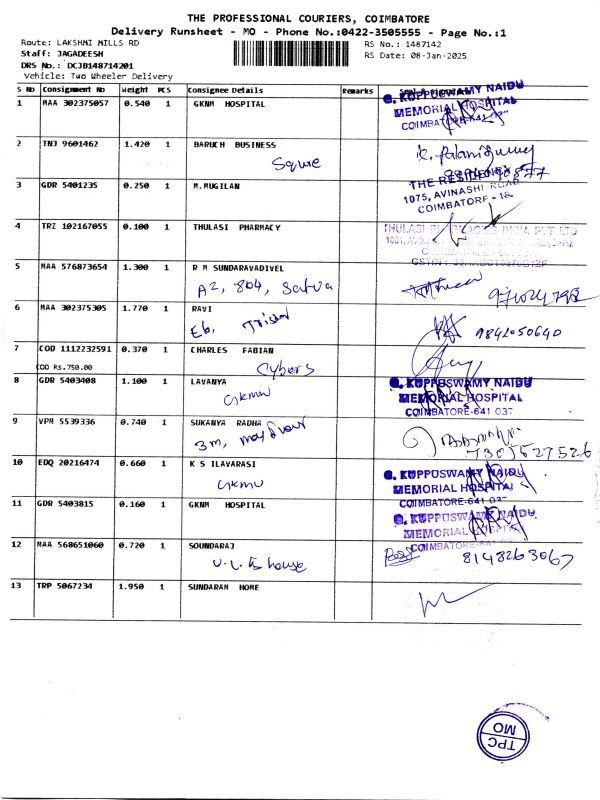 THE PROFESSIONAL COURIERS, COIMBATORE
Delivery Runsheet - MO - Phone No.:0422-3505555 - Page No.:1
Route: LAKSHMI MILLS RD
RS No.: 1487142
Staff: JAGADEESH
RS Date: 08-Jan-2025
DRS No.: DCJB148714201
Vehicle: Two Wheeler Delivery
S No Consignment No Weight PCS Consignee Details Remarks
1 MAA 302375057 0.540 1 GKNM HOSPITAL
G. KUPPUSWAMY NAIDU
MEMORIAL HOSPITAL
COIMBATORE-641 037
2 TNJ 9601462 1.420 1 BARUCH BUSINESS
Squre
3 GDR 5401235 0.250 1 M.MUGILAN
THE RESIDENCY
1075, AVINASHI ROAD
COIMBATORE - 18
4 TRZ 102167055 0.100 1 THULASI PHARMACY
5 MAA 576873654 1.300 1 R M SUNDARAVADIVEL
A2, 804,
6 MAA 302375305 1.770 1 RAVI
E6,
9842050640
7 COD 1112232591 0.370 1 CHARLES FABIAN
COD Rs.750.00
Cybers
8 GDR 5403408 1.100 1 LAVANYA
Gknm
G. KUPPUSWAMY NAIDU
MEMORIAL HOSPITAL
COIMBATORE-641 037
9 VPM 5539336 0.740 1 SUKANYA RADHA
3m,
7305527526
10 EDQ 20216474 0.660 1 K S ILAVARASI
Gknm
G. KUPPUSWAMY NAIDU
MEMORIAL HOSPITAL
COIMBATORE-641 037
11 GDR 5403815 0.160 1 GKNM HOSPITAL
G. KUPPUSWAMY NAIDU
MEMORIAL HOSPITAL
COIMBATORE-641 037
12 MAA 568651060 0.720 1 SOUNDARAJ
house
8148263067
13 TRP 5067234 1.950 1 SUNDARAM HOME
TPC
MO